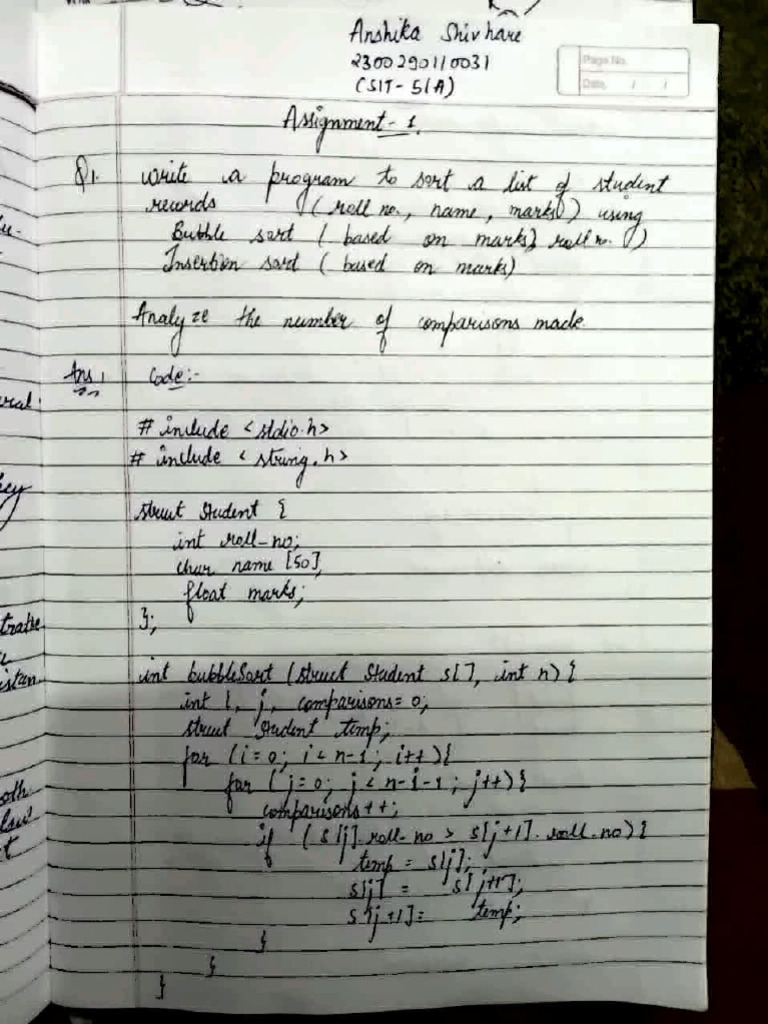 Anshika Shivhare
2300290110031
(SIT-51A)
Page No.
Date / /
Assignment - 1.
Q1. Write a program to sort a list of student
records (roll no., name, marks) using
Bubble sort (based on marks, roll no.)
Insertion sort (based on marks)
Analyze the number of comparisons made.
Ans 1 Code:-
# include <stdio.h>
# include <string.h>
struct Student {
int roll_no;
char name [50],
float marks;
};
int bubbleSort (struct Student s[], int n) {
int i, j, comparisons = 0;
struct Student temp;
for (i = 0; i < n-1; i++) {
for (j = 0; j < n-i-1; j++) {
comparisons ++;
if (s[j].roll_no > s[j+1].roll_no) {
temp = s[j];
s[j] = s[j+1];
s[j+1] = temp;
}
}
}